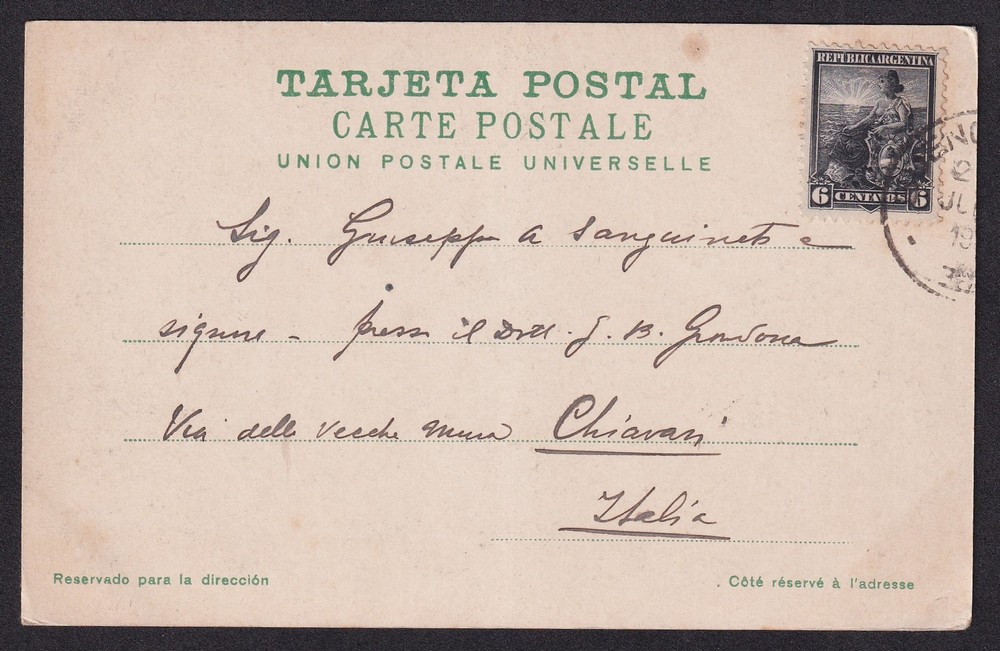 TARJETA POSTAL
CARTE POSTALE
UNION POSTALE UNIVERSELLE
REPÚBLICA ARGENTINA
6 CENTAVOS 6
Sig. Giuseppe A Sanguineti e
signora - presso il Dott. J. B. Grondona
Via delle vecchie mura Chiavari
Italia
Reservado para la dirección
Côté réservé à l'adresse